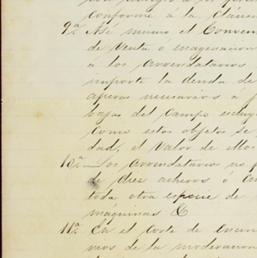 conforme á la Cláus
9ª. Asi mismo el Conven
de Venta o enagenacion
á los Arrendatarios
importe la deuda de
aperos necesarios á
bajas del Campo
Como estos objetos se
dad, el Valor de
10ª. Los Arrendatarios no p
de diez acheros ó
toda otra especie de
máquinas &
11ª. En el Corte de
mos de la moderacion